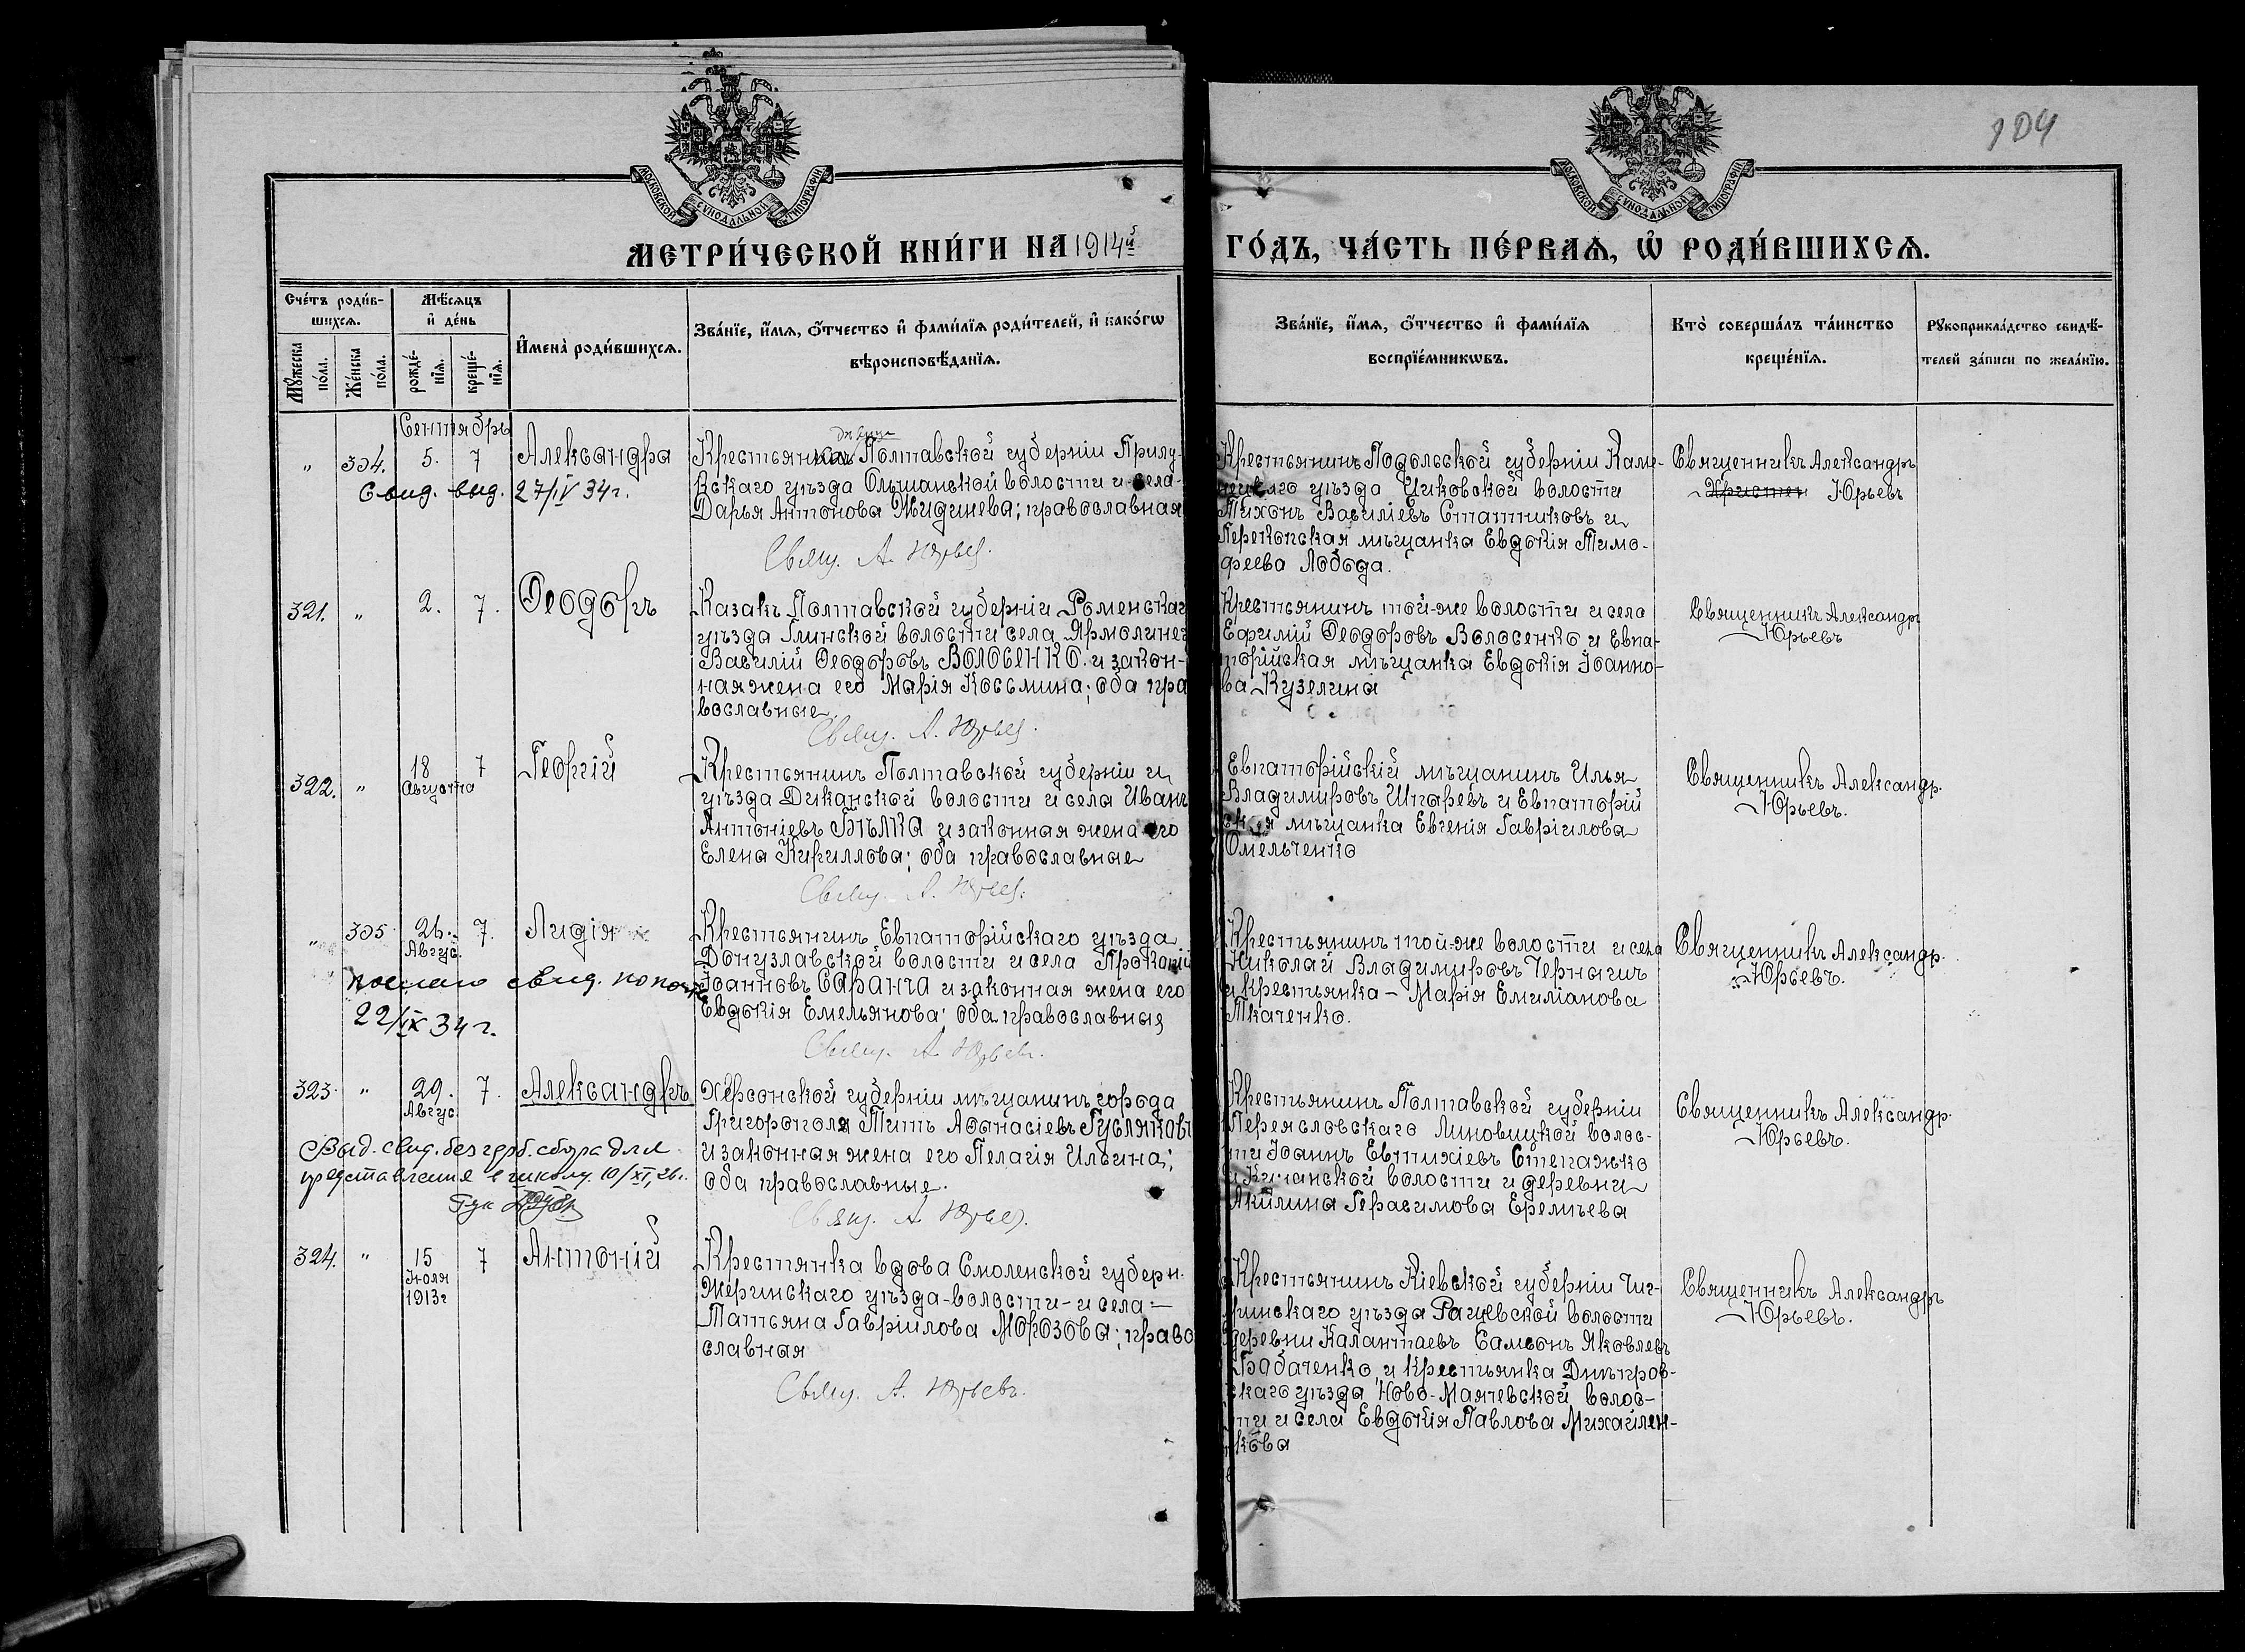 104
МОСКОВСКОЙ СѴНОДАЛЬНОЙ ТИПОГРАФІИ
МОСКОВСКОЙ СѴНОДАЛЬНОЙ ТИПОГРАФІИ
МЕТРИ́ЧЕСКОЙ КНИ́ГИ НА 1914й ГО́ДЪ, ЧА́СТЬ ПЕ́РВАѦ, Ѡ҆ РОДИ́ВШИХСѦ.
Сче́тъ роди́в-
шихсѧ.
Мѣ́сѧцъ
и҆ де́нь
И҆мена̀ роди́вшихсѧ.
Зва́нїе, и҆́мѧ, ѻ҆́тчество и҆ фами́лїѧ роди́телей, и҆ како́гѡ
вѣроисповѣ́данїѧ.
Зва́нїе, и҆́мѧ, ѻ҆́тчество и҆ фами́лїѧ
воспрїе́мникѡвъ.
Кто̀ соверша́лъ та́инство
креще́нїѧ.
Рꙋкоприкла́дство свидѣ́-
телей за́писи по жела́нїю.
Мꙋ́жеска
по́ла.
Же́нска
по́ла.
рожде́-
нїѧ.
креще́-
нїѧ.
Сентябрь
" 304. 5. 7 Александра
Свид. выд. 27/IV 34 г.
девица
Крестьянка Полтавской губерніи Прилу-
кскаго уѣзда Ольшанской волости и села
Дарья Антонова Жидинева; православная
Свящ. А. Юрьев.
Крестьянинъ Подольской губерніи Каме-
нецкаго уѣзда Циковской волости
Тихонъ Василіевъ Статниковъ и
Перекопская мѣщанка Евдокія Тимо-
феева Лобода.
Священникъ Александръ
Юрьевъ
321. " 2. 7. Ѳеодоръ
Казакъ Полтавской губерніи Роменскаг
уѣзда Глинской волости села Ярмолинец
Василій Ѳеодоровъ Волосенко и закон-
ная жена его Марія Косьмина; оба пра
вославные
Свящ. А. Юрьев.
Крестьянинъ той-же волости и села
Ефимій Ѳеодоровъ Волосенко и Евпа-
торійская мѣщанка Евдокія Іоанно-
ва Кузелина
Священникъ Александръ
Юрьевъ
322. " 18 Августа 7 Георгій
Крестьянинъ Полтавской губерніи и
уѣзда Диканской волости и села Иванъ
Антоніевъ Бѣлка и законная жена его
Елена Кириллова; оба православные
Свящ. А. Юрьев.
Евпаторійскій мѣщанинъ Илья
Владимировъ Шпаревъ и Евпаторій
ская мѣщанка Евгенія Гавріилова
Омельченко
Священникъ Александр.
Юрьевъ.
" 305 26. Авгус. 7. Лидія
послано свид. по почте
22/IX 34 г.
Крестьянинъ Евпаторійскаго уѣзда
Донузлавской волости и села Прокопій
Іоанновъ Саранча и законная жена его
Евдокія Емельянова; оба православныя
Свящ. А. Юрьевъ.
Крестьянинъ той-же волости и села
Николай Владимировъ Чернагич
и крестьянка - Марія Емиліанова
Ткаченко.
Священникъ Александр.
Юрьевъ.
323. " 29. Авгус. 7. Александръ
Выд. свид. без герб. сбора для
представления в школу. 10/XI, 26 г.
Херсонской губерніи мѣщанинъ города
Григорополя Титъ Аѳанасіевъ Гусляковъ
и законная жена его Пелагія Ильина;
оба православные.
Свящ. А Юрьев.
Крестьянинъ Полтавской губерніи
Переясловскаго Линовицкой волос-
ти Іоаннъ Евтихіевъ Степажко
волости и деревни
Акилина Герасимова Еремѣева
Священникъ Александр.
Юрьевъ.
324. " 15 Іюля 1913 г 7 Антоній
Крестянка вдова Смоленской губерн.
Жеринскаго уѣзда-волости-и села-
Татьяна Гавріилова Морозова; право
славная
Свящ. А. Юрьевъ.
Крестьянинъ Кіевской губерніи Чиг-
ринскаго уѣзда Рацевской волости
деревни Калантаевъ Самсонъ Яковлевъ
Бабаченко и крестьянка Днѣпров-
скаго уѣзда Ново-Маячевской волос-
ти и села Евдокія Павлова Михайлен-
кова
Священникъ Александръ
Юрьевъ.